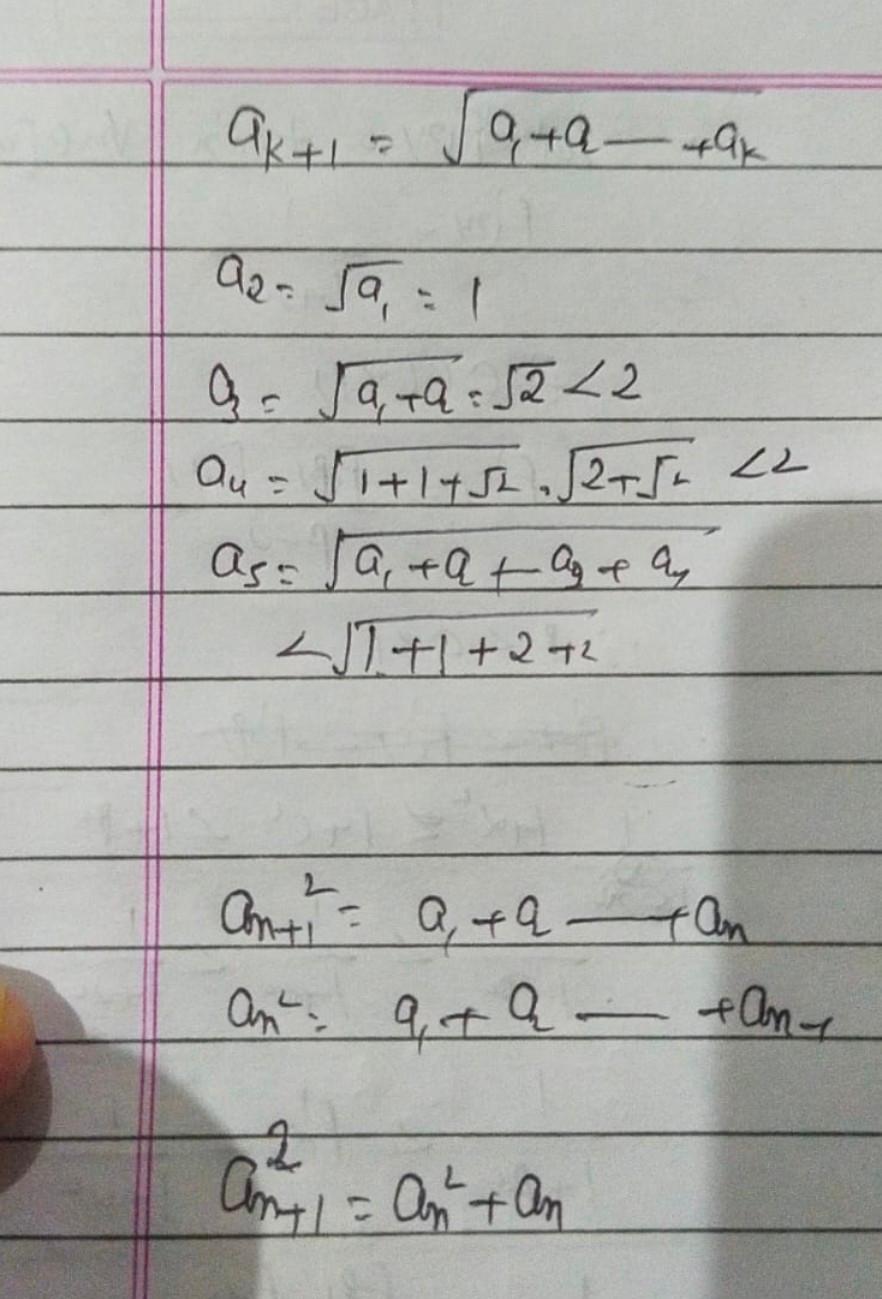 a_{k+1} = √(a₁+a — +a_k)
a₂ = √a₁ = 1
a₃ = √(a₁+a) = √2 < 2
a₄ = √(1+1+√2) = √(2+√2) < 2
a₅ = √(a₁+a+a₃+a₄)
< √(1+1+2+2)
a_{n+1}² = a₁+a — +a_n
a_n² = a₁+a₂ — +a_{n-1}
a²_{n+1} = a_n²+a_n